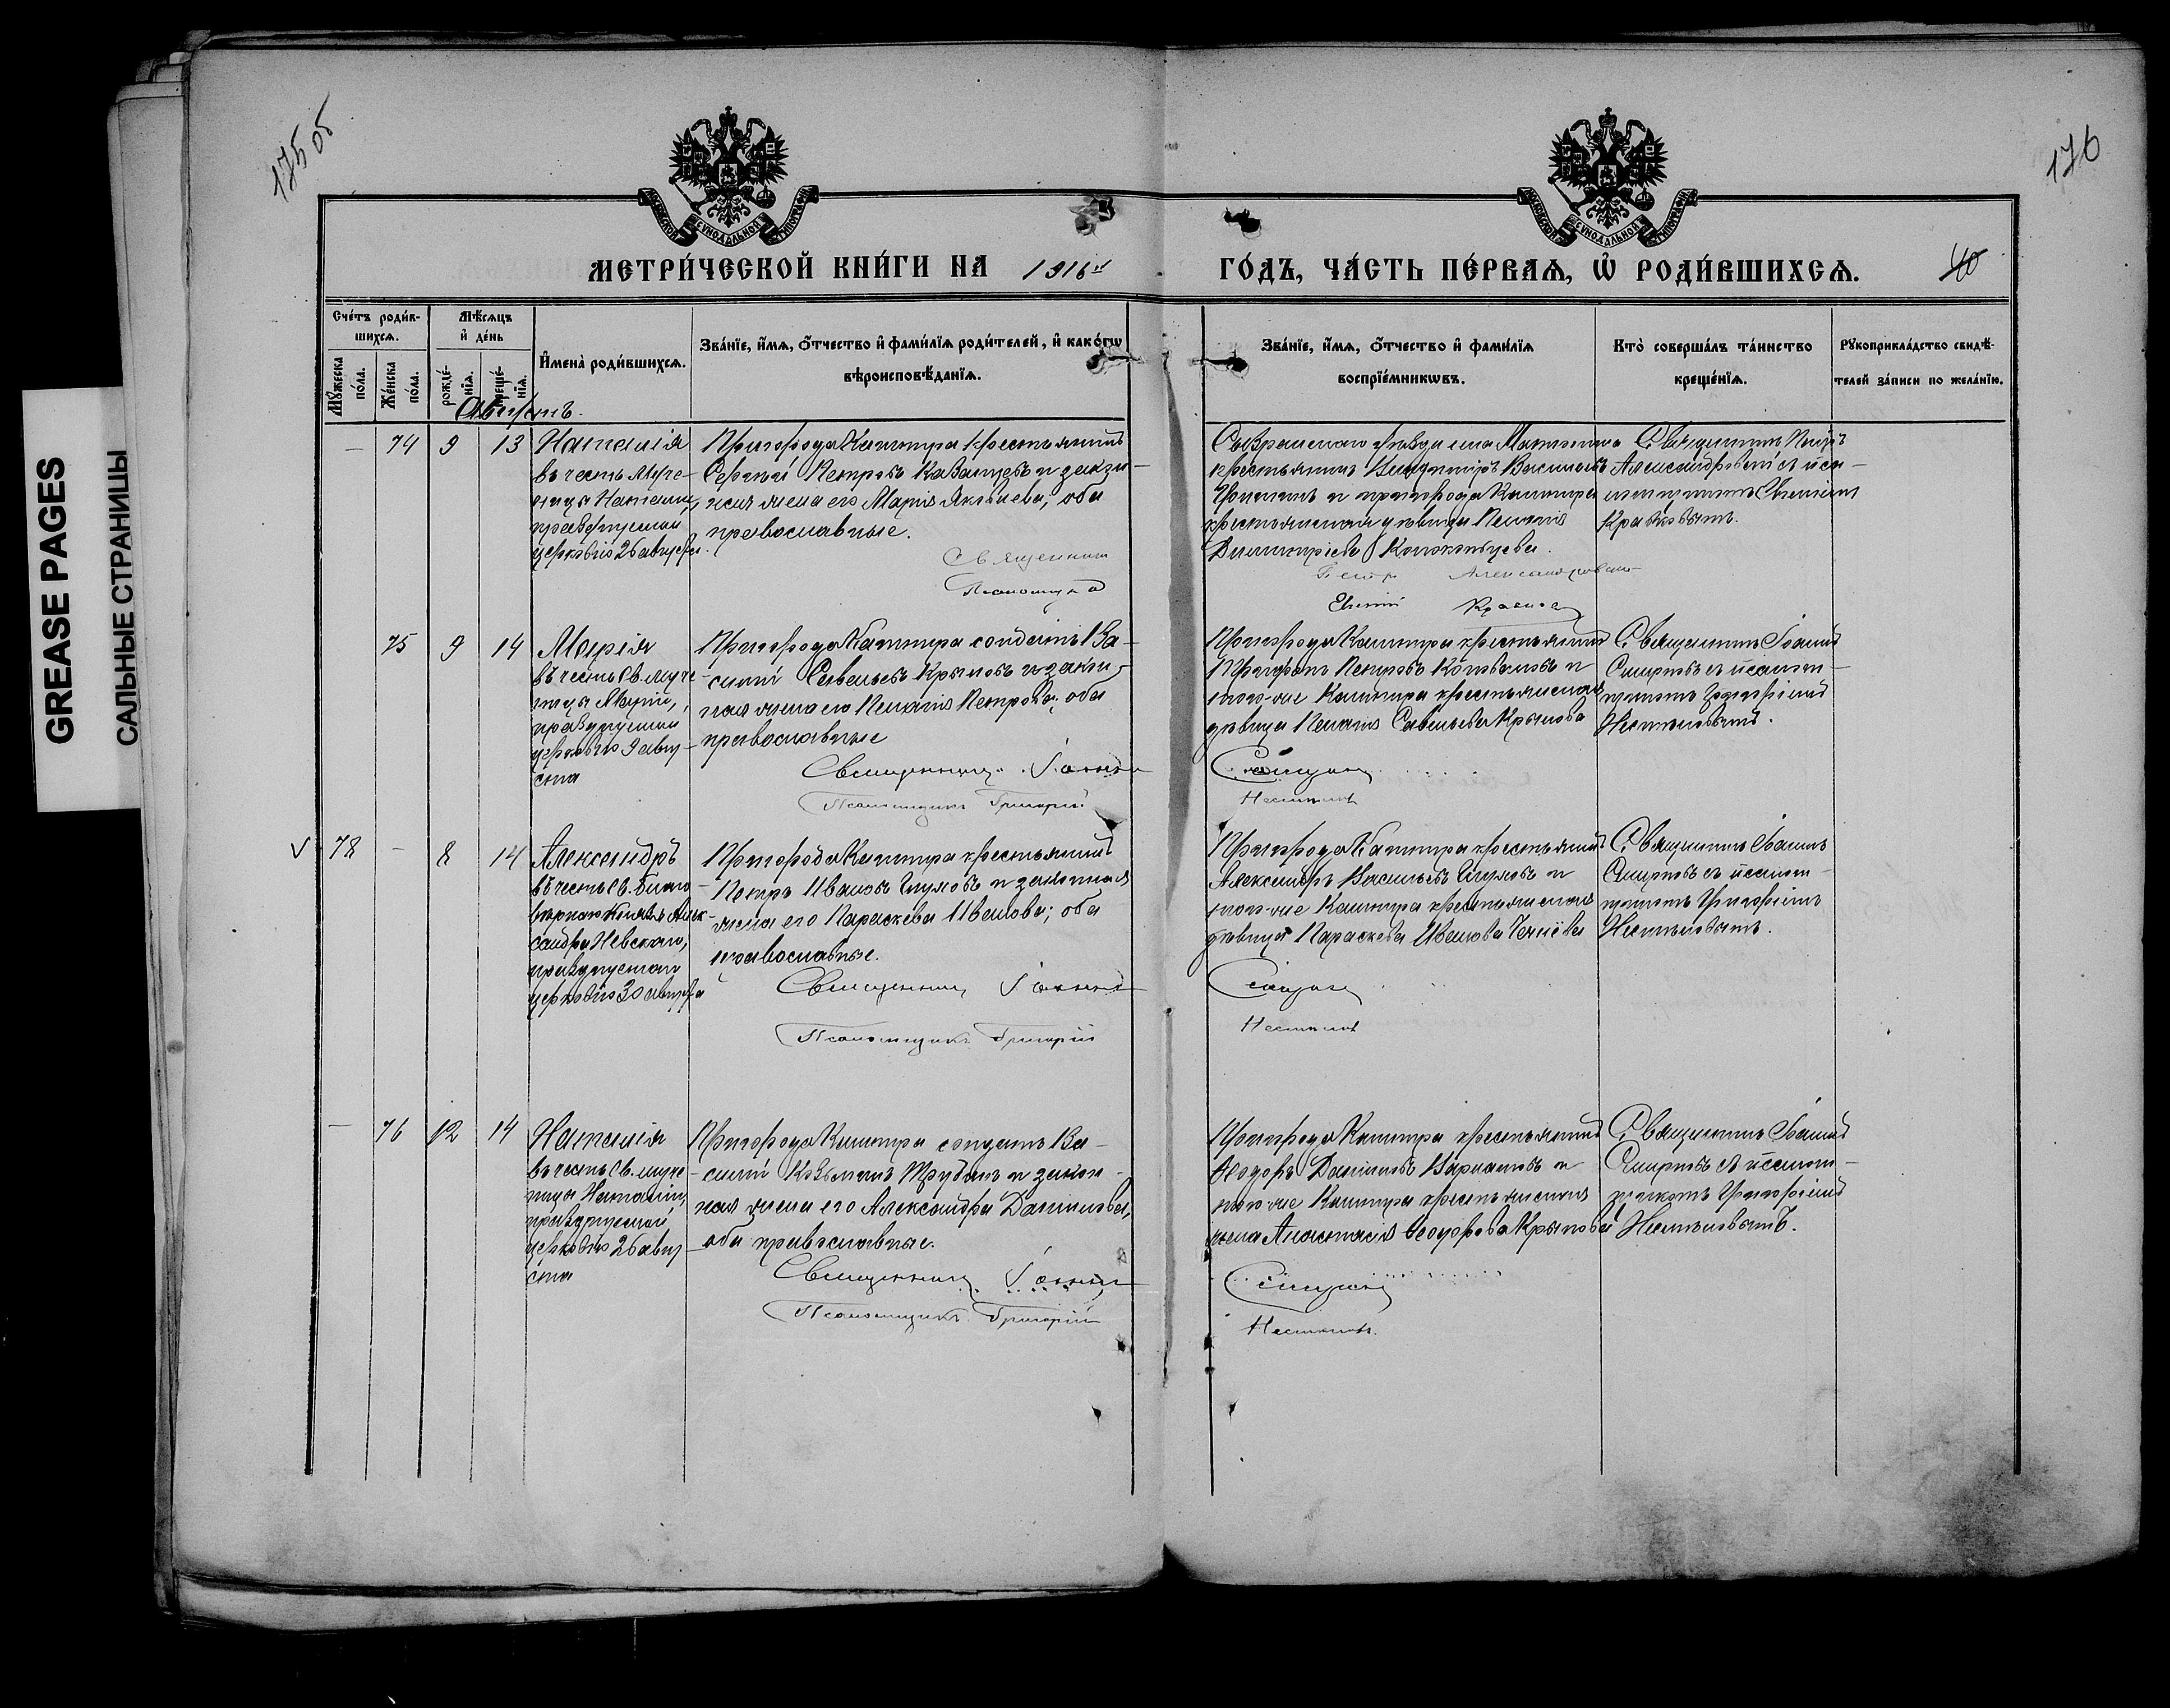 GREASE PAGES
САЛЬНЫЕ СТРАНИЦЫ
175 об
176
МОСКОВСКОЙ СУНОДАЛЬНОЙ ТИПОГРАФІИ
МОСКОВСКОЙ СУНОДАЛЬНОЙ ТИПОГРАФІИ
МЕТРИ́ЧЕСКОЙ КНИ́ГИ НА 1916й
ГО́ДЪ, ЧА́СТЬ ПЕ́РВАѦ, Ѡ҆ РОДИ́ВШИХСѦ.
40
Сче́тъ роди́в-
шихсѧ.
Мꙋ́жеска по́ла.
Же́нска по́ла.
Мѣ́сѧцъ
и҆ де́нь
рожде́-
нїѧ.
креще́-
нїѧ.
И҆мена̀ роди́вшихсѧ.
Зва́нїе, и҆́мѧ, ѻ҆́тчество и҆ фами́лїѧ роди́телей, и҆ како́гѡ
вѣроисповѣ́данїѧ.
Зва́нїе, и҆́мѧ, ѻ҆́тчество и҆ фами́лїѧ
воспрїе́мникѡвъ.
Кто̀ соверша́лъ та́инство
креще́нїѧ.
Рꙋкоприкла́дство свидѣ́-
телей за́писи по жела́нїю.
Августъ.
— 74 9 13 Наталія
въ честь муче-
ницы Наталіи,
празднуемой
церковію 26 августа.
Пригорода Кашпира крестьянинъ
Сергѣй Петровъ Казанцевъ и закон-
ная жена его Марія Яковлева; оба
православные.
Священникъ
Псаломщикъ
Сызранскаго уѣзда села
крестьянинъ Димитрій Васильевъ
и пригорода Кашпира
крестьянская дѣвица Пелагія
Димитріева
Петръ Александровскій
Евгеній Красновъ
Священникъ Петръ
Александровскій съ псалом-
щикомъ Евгеніемъ
75 9 14 Марія
въ честь св. муче-
ницы Маріи,
празднуемой
церковію 9 авгу-
ста
Пригорода Кашпира солдатъ Ва-
силій Савельевъ Крыловъ и закон-
ная жена его Пелагія Петрова; оба
православные
Священникъ Іоаннъ
Псаломщикъ Григорій
Пригорода Кашпира крестьянинъ
Петровъ и
того-же Кашпира крестьянская
дѣвица Пелагія Савельева Крылова
Смирновъ
Священникъ Іоаннъ
Смирновъ съ псалом-
щикомъ Григоріемъ
V 78 — 8 14 Александръ
въ честь св. благо-
вѣрнаго Князя Алек-
сандра Невскаго,
празднуемаго
церковію 30 августа
Пригорода Кашпира крестьянинъ
Петръ Ивановъ Глуховъ и законная
жена его Параскева Иванова; оба
православные.
Священникъ Іоаннъ
Псаломщикъ Григорій
Пригорода Кашпира крестьянинъ
Александръ Васильевъ Глуховъ и
того-же Кашпира крестьянская
дѣвица Параскева Иванова
Смирновъ
Священникъ Іоаннъ
Смирновъ съ псалом-
щикомъ Григоріемъ
— 76 12 14 Наталія
въ честь св. муче-
ницы Наталіи,
празднуемой
церковію 26 авгу-
ста
Пригорода Кашпира солдатъ Ва-
силій Козьминъ Трубинъ и закон-
ная жена его Александра Данилова,
оба православные.
Священникъ Іоаннъ
Псаломщикъ Григорій
Пригорода Кашпира крестьянинъ
Ѳеодоръ Даниловъ и
того-же Кашпира крестьянская
жена Анастасія Ѳеодорова Крылова
Смирновъ
Священникъ Іоаннъ
Смирновъ съ псалом-
щикомъ Григоріемъ